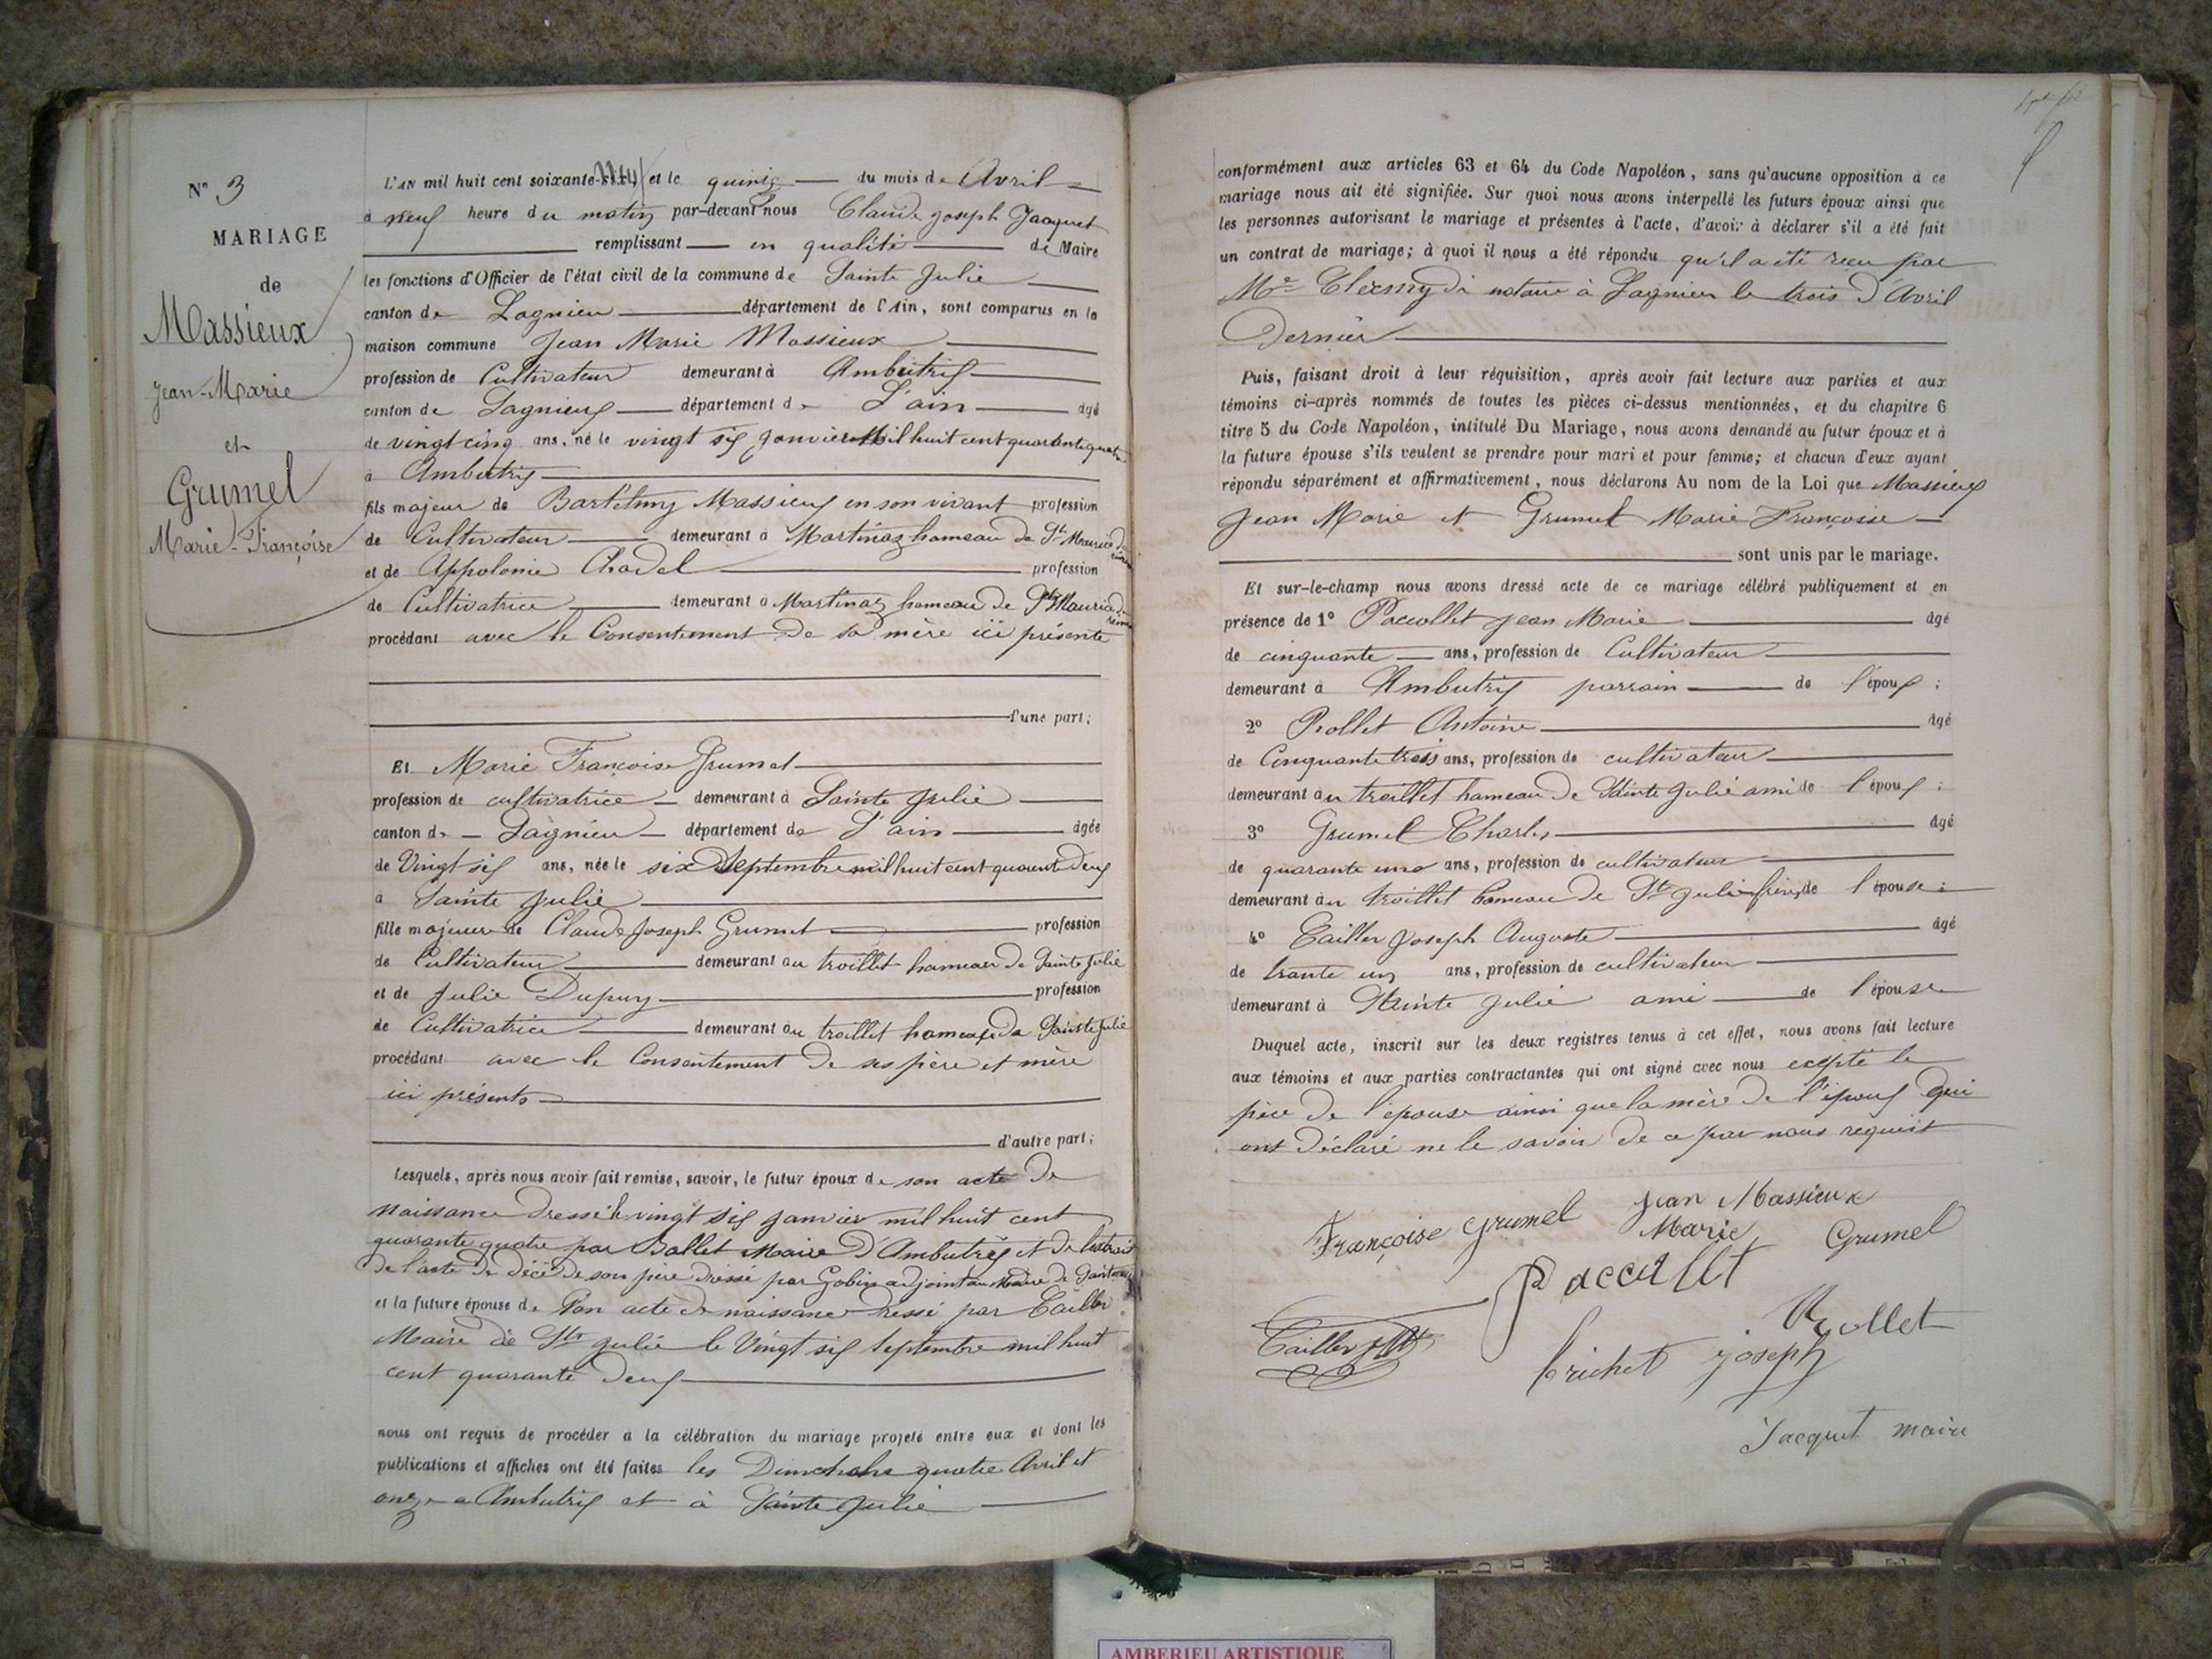 N° 3
MARIAGE
de
Massieux
Jean-Marie
et
Grumel
Marie-Françoise
L'AN mil huit cent soixante- et le quinze du mois de Avril
à neuf heure du matin par-devant nous Claude joseph Jacquet
remplissant en qualité de Maire
les fonctions d'Officier de l'état civil de la commune de Sainte Julie
canton de Lagnieu département de l'Ain, sont comparus en la
maison commune Jean Marie Massieux
profession de Cultivateur demeurant à Ambutrix
canton de Lagnieux département de L'ain âgé
de vingt cinq ans, né le vingt six janvier Mil huit cent quarante quatre
à Ambutrix
fils majeur de Bartelmy Massieux en son vivant profession
de Cultivateur demeurant à Martinaz hameau de St Maurice de
et de Appolonie Chadel profession
de Cultivatrice demeurant à Martinaz hameau de St Maurice de
procédant avec le Consentement de sa mère ici présente
d'une part;
Et Marie Françoise Grumel
profession de cultivatrice demeurant à Sainte Julie
canton de Lagnieu département de L'ain âgée
de Vingt six ans, née le six Septembre mil huit cent quarante deux
à Sainte Julie
fille majeure de Claude Joseph Grumel profession
de Cultivateur demeurant au troillet hameau de Sainte Julie
et de Julie Dupuy profession
de Cultivatrice demeurant au troillet hameau de Sainte Julie
procédant avec le Consentement de ses père et mère
ici présents
d'autre part;
Lesquels, après nous avoir fait remise, savoir, le futur époux de son acte de
naissance dressé le vingt six janvier mil huit cent
quarante quatre par Ballet Maire d'Ambutrix et de l'extrait
de l'acte de décè de son père dressé par Gobin adjoint au Maire de
et la future épouse de Son acte de naissance dressé par Tailler
Maire de Ste Julie le Vingt six Septembre mil huit
cent quarante deux
nous ont requis de procéder à la célébration du mariage projeté entre eux et dont les
publications et affiches ont été faites les Dimchahe quatre Avril et
onze a Ambutrix et à Sainte Julie
conformément aux articles 63 et 64 du Code Napoléon, sans qu'aucune opposition à ce
mariage nous ait été signifiée. Sur quoi nous avons interpellé les futurs époux ainsi que
les personnes autorisant le mariage et présentes à l'acte, d'avoir à déclarer s'il a été fait
un contrat de mariage; à quoi il nous a été répondu qu'il a été reçu par
Me notaire à Lagnieu le trois d'Avril
Dernier
Puis, faisant droit à leur réquisition, après avoir fait lecture aux parties et aux
témoins ci-après nommés de toutes les pièces ci-dessus mentionnées, et du chapitre 6
titre 5 du Code Napoléon, intitulé Du Mariage, nous avons demandé au futur époux et à
la future épouse s'ils veulent se prendre pour mari et pour femme; et chacun d'eux ayant
répondu séparément et affirmativement, nous déclarons Au nom de la Loi que Massieux
Jean Marie et Grumel Marie Françoise
sont unis par le mariage.
Et sur-le-champ nous avons dressé acte de ce mariage célébré publiquement et en
présence de 1° Paccollet Jean Marie âgé
de cinquante ans, profession de Cultivateur
demeurant à Ambutrix parrain de l'époux;
2° Rollet Antoine âgé
de Cinquante trois ans, profession de cultivateur
demeurant au troillet hameau de Sainte Julie ami de l'époux;
3° Grumel Charles âgé
de quarante uno ans, profession de cultivateur
demeurant au troillet hameau de Ste Julie frère de l'épouse;
4° Tailler Joseph Auguste âgé
de trante un ans, profession de cultivateur
demeurant à Sainte Julie ami de l'épouse
Duquel acte, inscrit sur les deux registres tenus à cet effet, nous avons fait lecture
aux témoins et aux parties contractantes qui ont signé avec nous ecepté le
père de l'épouse ainsi que la mère de l'époux qui
ont déclaré ne le savoir de ce par nous requis
Françoise Grumel Jean Massieux
Marie Grumel
Paccollet
Tailler Rollet
brichet joseph
Jacquet maire
AMBERIEU ARTISTIQUE